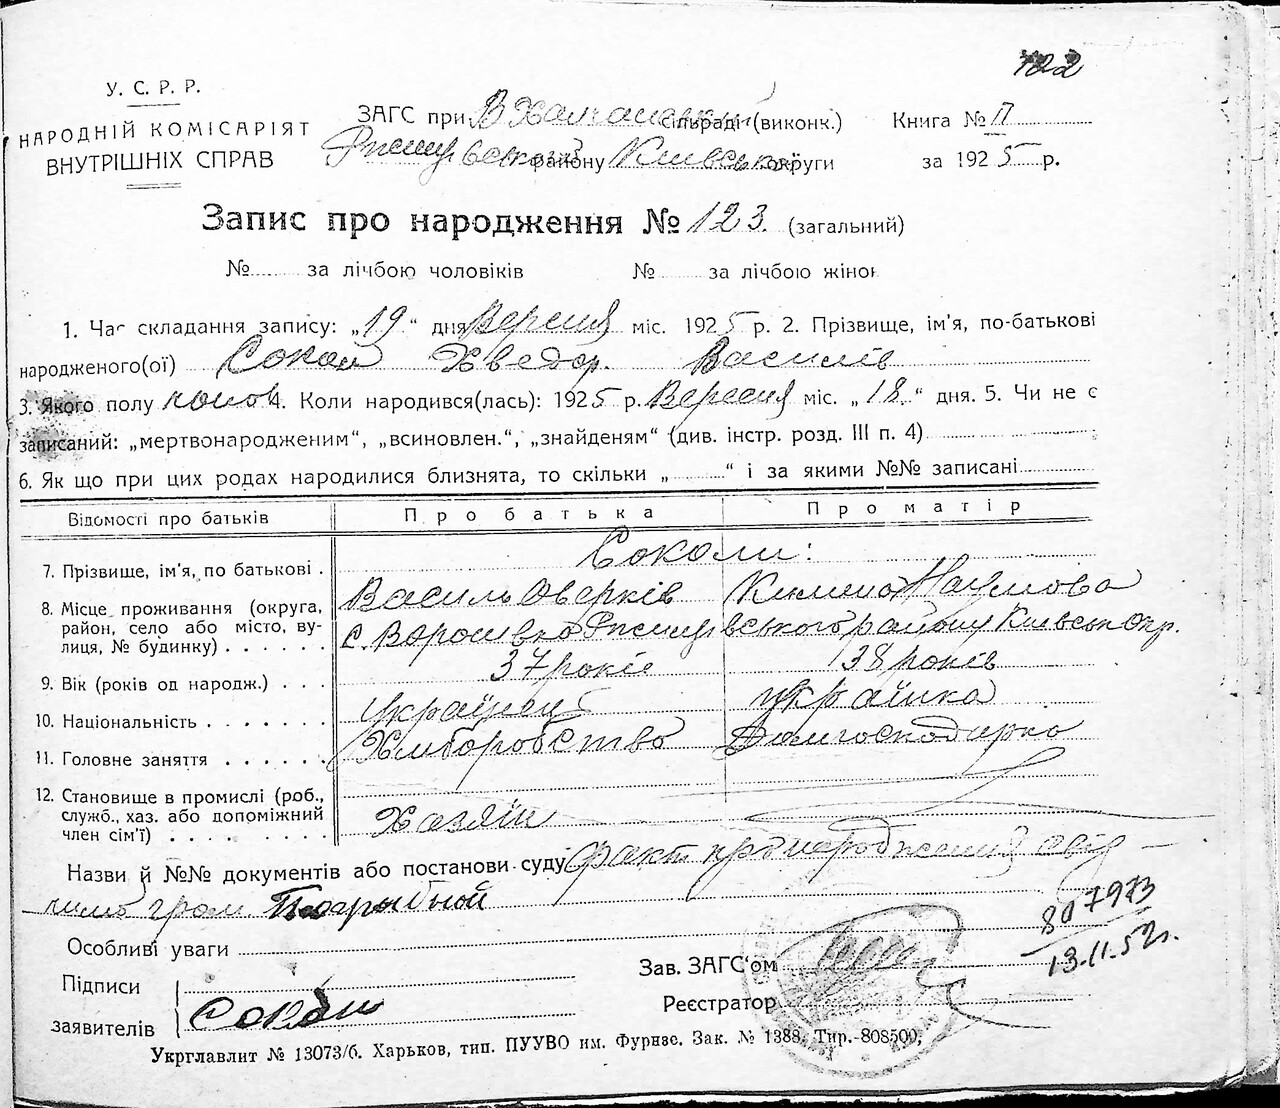 122
У. С. Р. Р.
НАРОДНІЙ КОМІСАРІЯТ
ВНУТРІШНІХ СПРАВ
ЗАГС при сільраді (виконк.)
району Київської округи
Книга № П
за 1925 р.
Запис про народження № 123. (загальний)
№ за лічбою чоловіків № за лічбою жінок
1. Час складання запису: „19“ дня Вересня міс. 1925 р. 2. Прізвище, ім'я, по-батькові
народженого(ої) Сокол Хведор. Василів
3. Якого полу чолов 4. Коли народився(лась): 1925 р. Вересня міс. „18“ дня. 5. Чи не є
записаний: „мертвонародженим“, „всиновлен.“, „знайденям“ (див. інстр. розд. III п. 4)
6. Як що при цих родах народилися близнята, то скільки „ “ і за якими №№ записані
Відомості про батьків Про батька Про матір
Соколи:
7. Прізвище, ім'я, по батькові . Василь Оверків Наумова
8. Місце проживання (округа, район, село або місто, ву-
лиця, № будинку) . . . . . . с. району Київськ окр.
9. Вік (років од народж.) . . . 37 років 38 років
10. Національність . . . . . . . Українец українка
11. Головне заняття . . . . . . Хліборобство Домгосподарка
12. Становище в промислі (роб.,
служб., хаз. або допоміжний
член сім'ї) . . . . . . . . Хазяїн
Назви й №№ документів або постанови суду факт про народження свід
гром.
Особливі уваги
807973
13.11.52г.
Підписи
заявителів Сокол
Зав. ЗАГС'ом
Реєстратор
Укрглавлит № 13073/б. Харьков, тип. ПУУВО им. Фрунзе. Зак. № 1388. Тир.-808500.